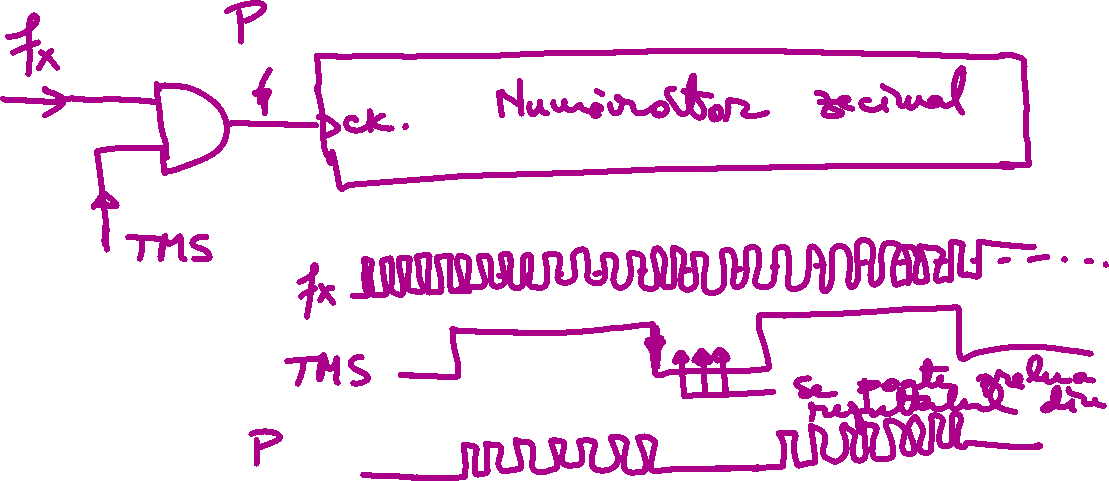 P
fx
Numărător zecimal
ck.
TMS
fx
TMS
se poate prelua
rezultatul din
P